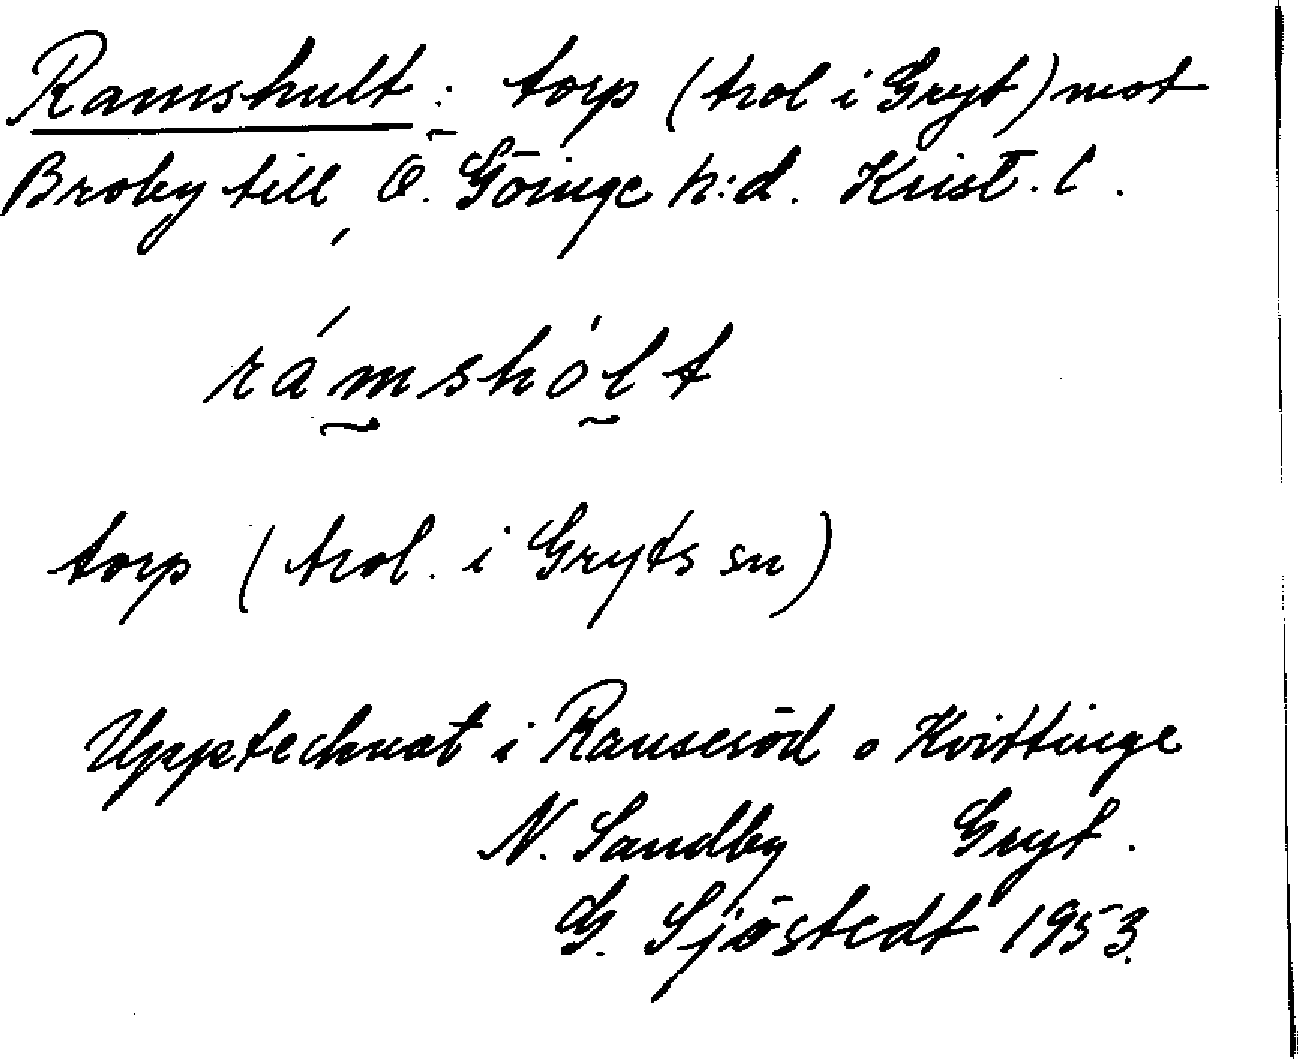 Ramshult: torp (trol i Gryt) mot
Broby till Ö. Göinge h:d. Krist. l.
rámshólt
torp (trol. i Gryts sn)
Upptecknat i Ransesröd o Kvittinge
N. Sandby Gryt.
G. Sjöstedt 1953.